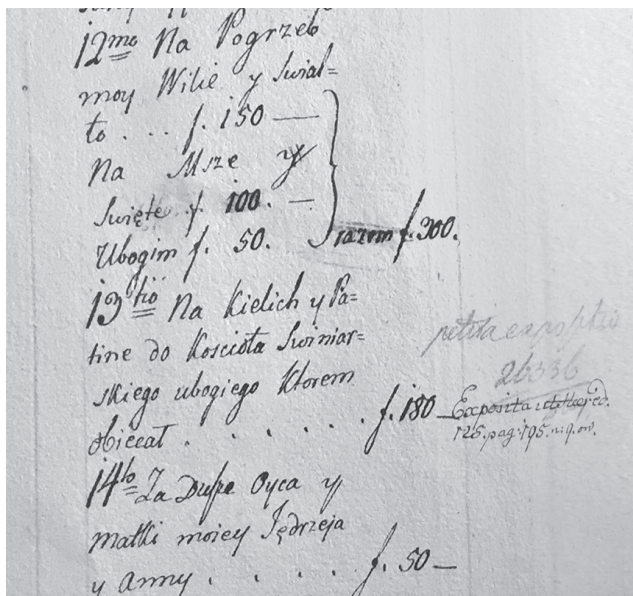 12mo Na Pogrzeb
moy Wilie y Swiat=
to . . . f. 150 —
Na Msze y
Swięte f. 100. —
Ubogim f. 50.
razem f. 300.
13tio Na Kielich y Pa=
tine do Kosciola Swiniar=
skiego ubogiego Ktorem
obiecał . . . . . f. 180 —
Exposita
125. pag: 195. n: 9.
14to Za Dusze Oyca y
matki moiey Jędrzeja
y Anny . . . . f. 50 —